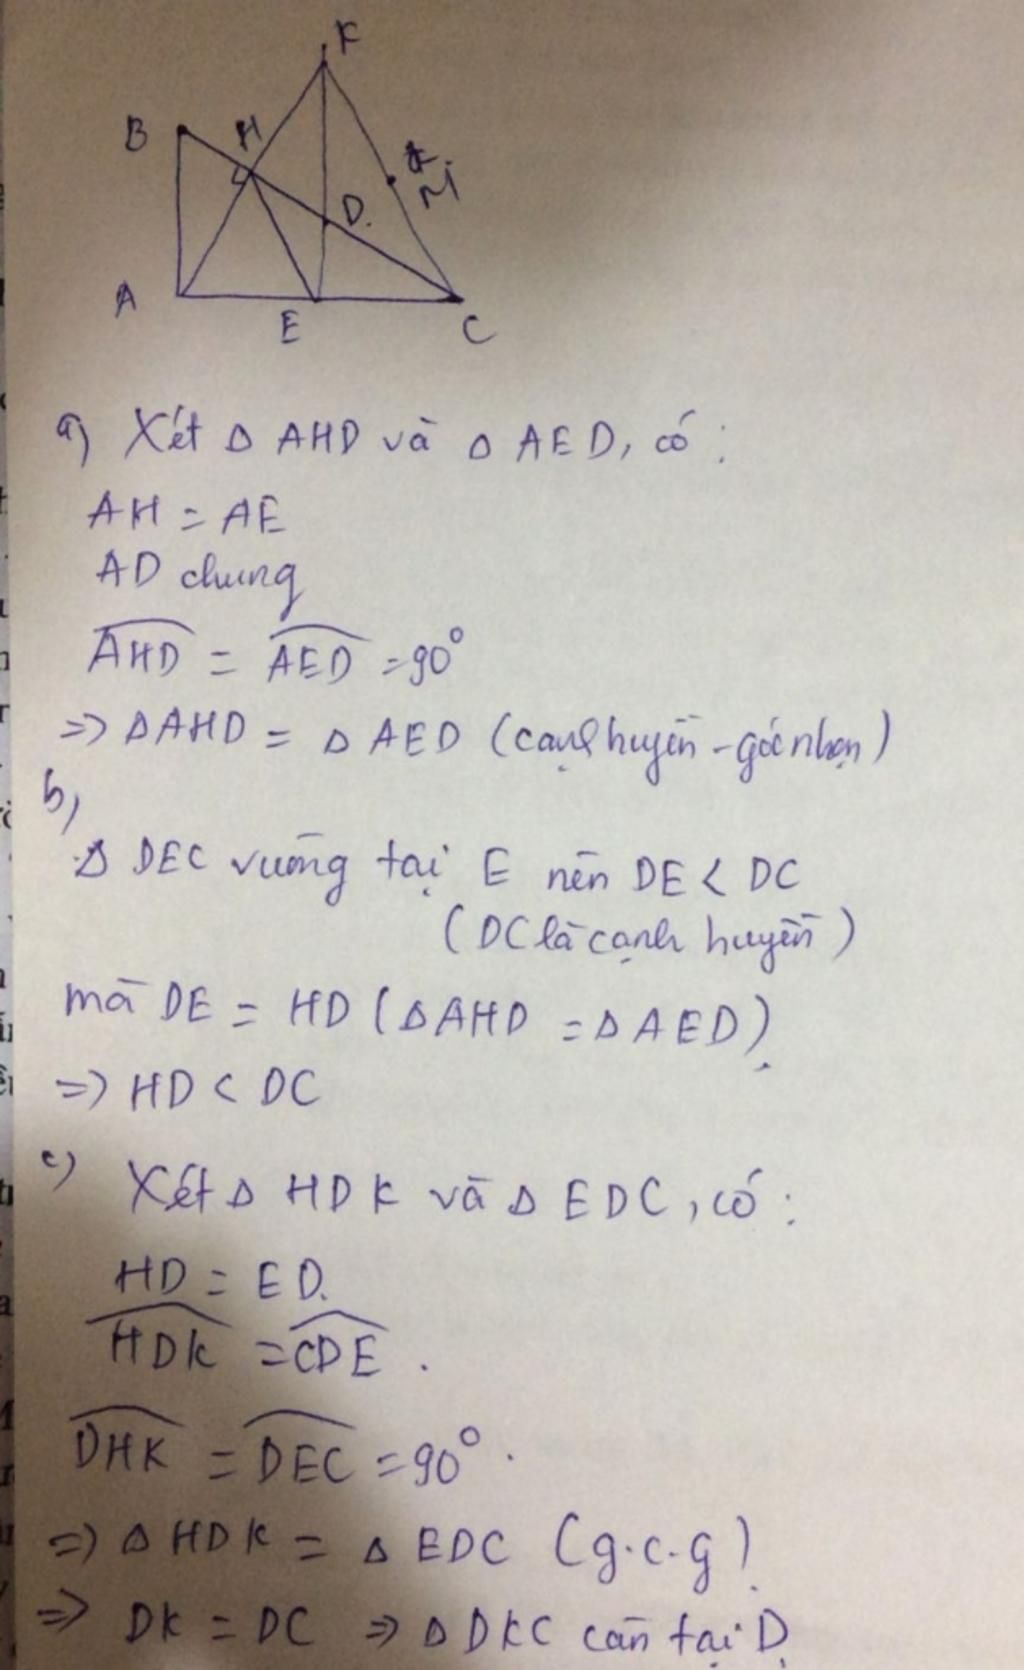 K
B
H
K
M
D.
A
E
C
a) Xét Δ AHD và Δ AED, có:
AH = AE
AD chung
AHD = AED = 90°
=> ΔAHD = Δ AED (cạnh huyền - góc nhọn)
b)
Δ DEC vuông tại E nên DE < DC
(DC là cạnh huyền)
mà DE = HD (ΔAHD = ΔAED).
=> HD < DC
c)
Xét Δ HDK và Δ EDC, có:
HD = ED.
HDK = CDE.
DHK = DEC = 90°.
=> Δ HDK = Δ EDC (g.c.g).
=> DK = DC => Δ DKC cân tại D.